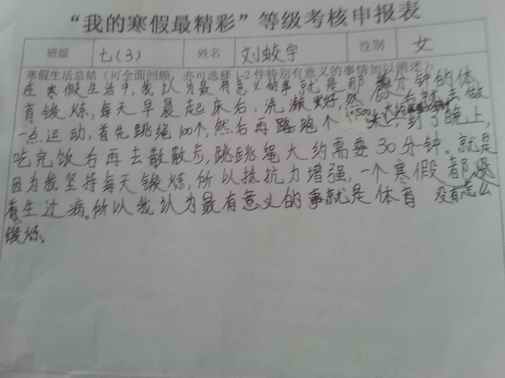 “我的寒假最精彩”等级考核申报表
班级 七(3) 姓名 刘蛟宇 性别 女
寒假生活总结(可全面回顾,亦可选择1-2件特别有意义的事情加以阐述)
在寒假生活中,我认为最有意义的事就是那 分钟的体
育锻炼,每天早晨起床后,洗漱好,然后就去做
一点运动,首先跳绳100个,然后再跑跑个 到了晚上,
吃完饭后再去散散步,跳跳绳大约需要30分钟。就是
因为我坚持每天锻炼,所以抵抗力增强,一个寒假都没
有生过病。所以我认为最有意义的事就是体育
锻炼。